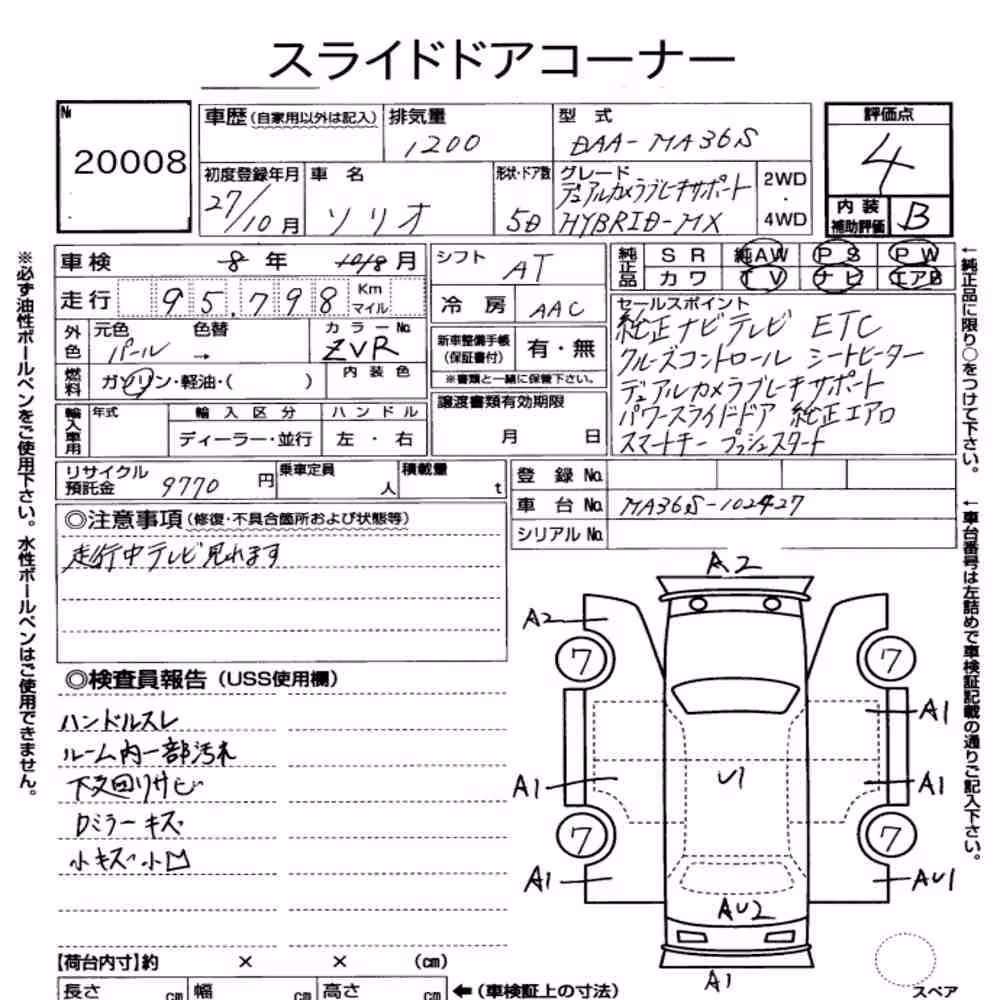 スライドドアコーナー
№ 20008
車歴 (自家用以外は記入) 排気量 1200 型式 DAA-MA36S
評価点 4
初度登録年月 27/10月 車名 ソリオ 形状・ドア数 5D グレード デュアルカメラブレーキサポート HYBRID-MX 2WD・4WD
内装補助評価 B
車検 8年 月
走行 95,798 Km マイル
外色 元色 パール 色替 → カラーNo. ZVR
燃料 ガソリン・軽油・( ) 内装色
輸入車用 年式 輸入区分 ディーラー・並行 ハンドル 左・右
シフト AT
冷房 AAC
新車整備手帳(保証書付) 有・無
※書類と一緒に保管下さい。
譲渡書類有効期限
月 日
純正品 SR 純AW PS PW
カワ TV ナビ エアB
セールスポイント
純正ナビテレビ ETC
クルーズコントロール シートヒーター
デュアルカメラブレーキサポート
パワースライドドア 純正エアロ
スマートキー プッシュスタート
リサイクル預託金 9770円 乗車定員 人 積載量 t
登録No.
車台No. MA36S-102427
シリアルNo.
◎注意事項 (修復・不具合箇所および状態等)
走行中テレビ見れます
◎検査員報告 (USS使用欄)
ハンドルスレ
ルーム内一部汚れ
下回りサビ
Dミラーキズ
小キズ小凹
A2
A2
7 7
A1
U1
A1 A1
7 7
A1 AU1
AU2
A1
スペア
【荷台内寸】約 × × (cm)
長さ cm 幅 cm 高さ cm ←(車検証上の寸法)
※必ず油性ボールペンをご使用下さい。水性ボールペンはご使用できません。
←純正品に限り○をつけて下さい。
←車台番号は左詰めで車検証記載の通りご記入下さい。